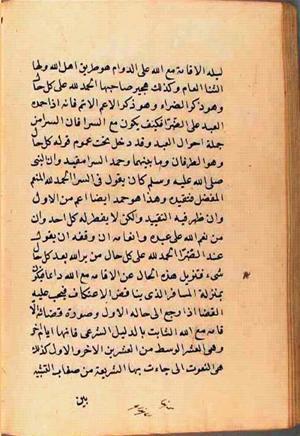 ليله الاقامة مع الله على الدوام هو طريق اهل الله ولها
الثنا العام وكذلك هجير صاحبها الحمد لله على كل حال
وهو ذكر الضراء وهو ذكر الاعم الاتم فانه اذا حمده
العبد على الضرّا فكيف يكون مع السرا فان السرا من
جملة احوال العبد وقد دخل تحت عموم قوله كل حال
وهو الطرفان وما بينهما وحمد السرا مقيد وان النبى
صلى الله عليه وسلم كان يقول فى السرا الحمد لله المنعم
المفضل فتقيده وهذا هو حمد ايضا اعم من الاول
وان ظهر فيه التقييد ولكن لا يفطن له كل احد وان
من نعم الله على عبده وانعامه ان وفقه ان يقول
عند الضرّا الحمد لله على كل حال من براه بعد كل
شىء فتنزيل هذه الحال عن الاقامة مع الله دائما
بمنزلة المسافر الذى يناقض الاعتكاف فيجب عليه
القضا اذا رجع الى حاله الاول وصورة قضائه
قامة مع الله الثابت بالدليل الشرعى فانها ايام اخر
وهى العشر الوسط من العشرين الاخر والاول كذلك
هى النعوت التى جاءت بها الشريعة من صفات التشبيه
بين